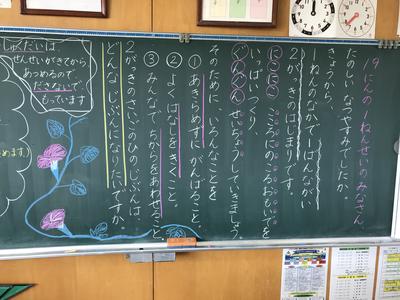 19にんの1ねんせいのみなさん
たのしいなつやすみでしたか。
きょうから、
1ねんのなかで1ばんながい
2がっきのはじまりです。
にこにこ のこるおもいでを
いっぱいつくり、
ぐんぐんせいちょうしていきましょう。
そのために、いろんなことを
①あきらめずにがんばること。
②よくはなしをきくこと。
③みんなでちからをあわせること。
2がっきのさいごのひのじぶんは、
どんなじぶんになりたいですか。
しゅくだいは、
せんせいがきてから
あつめるので、
ださないで、
もっています
めます)